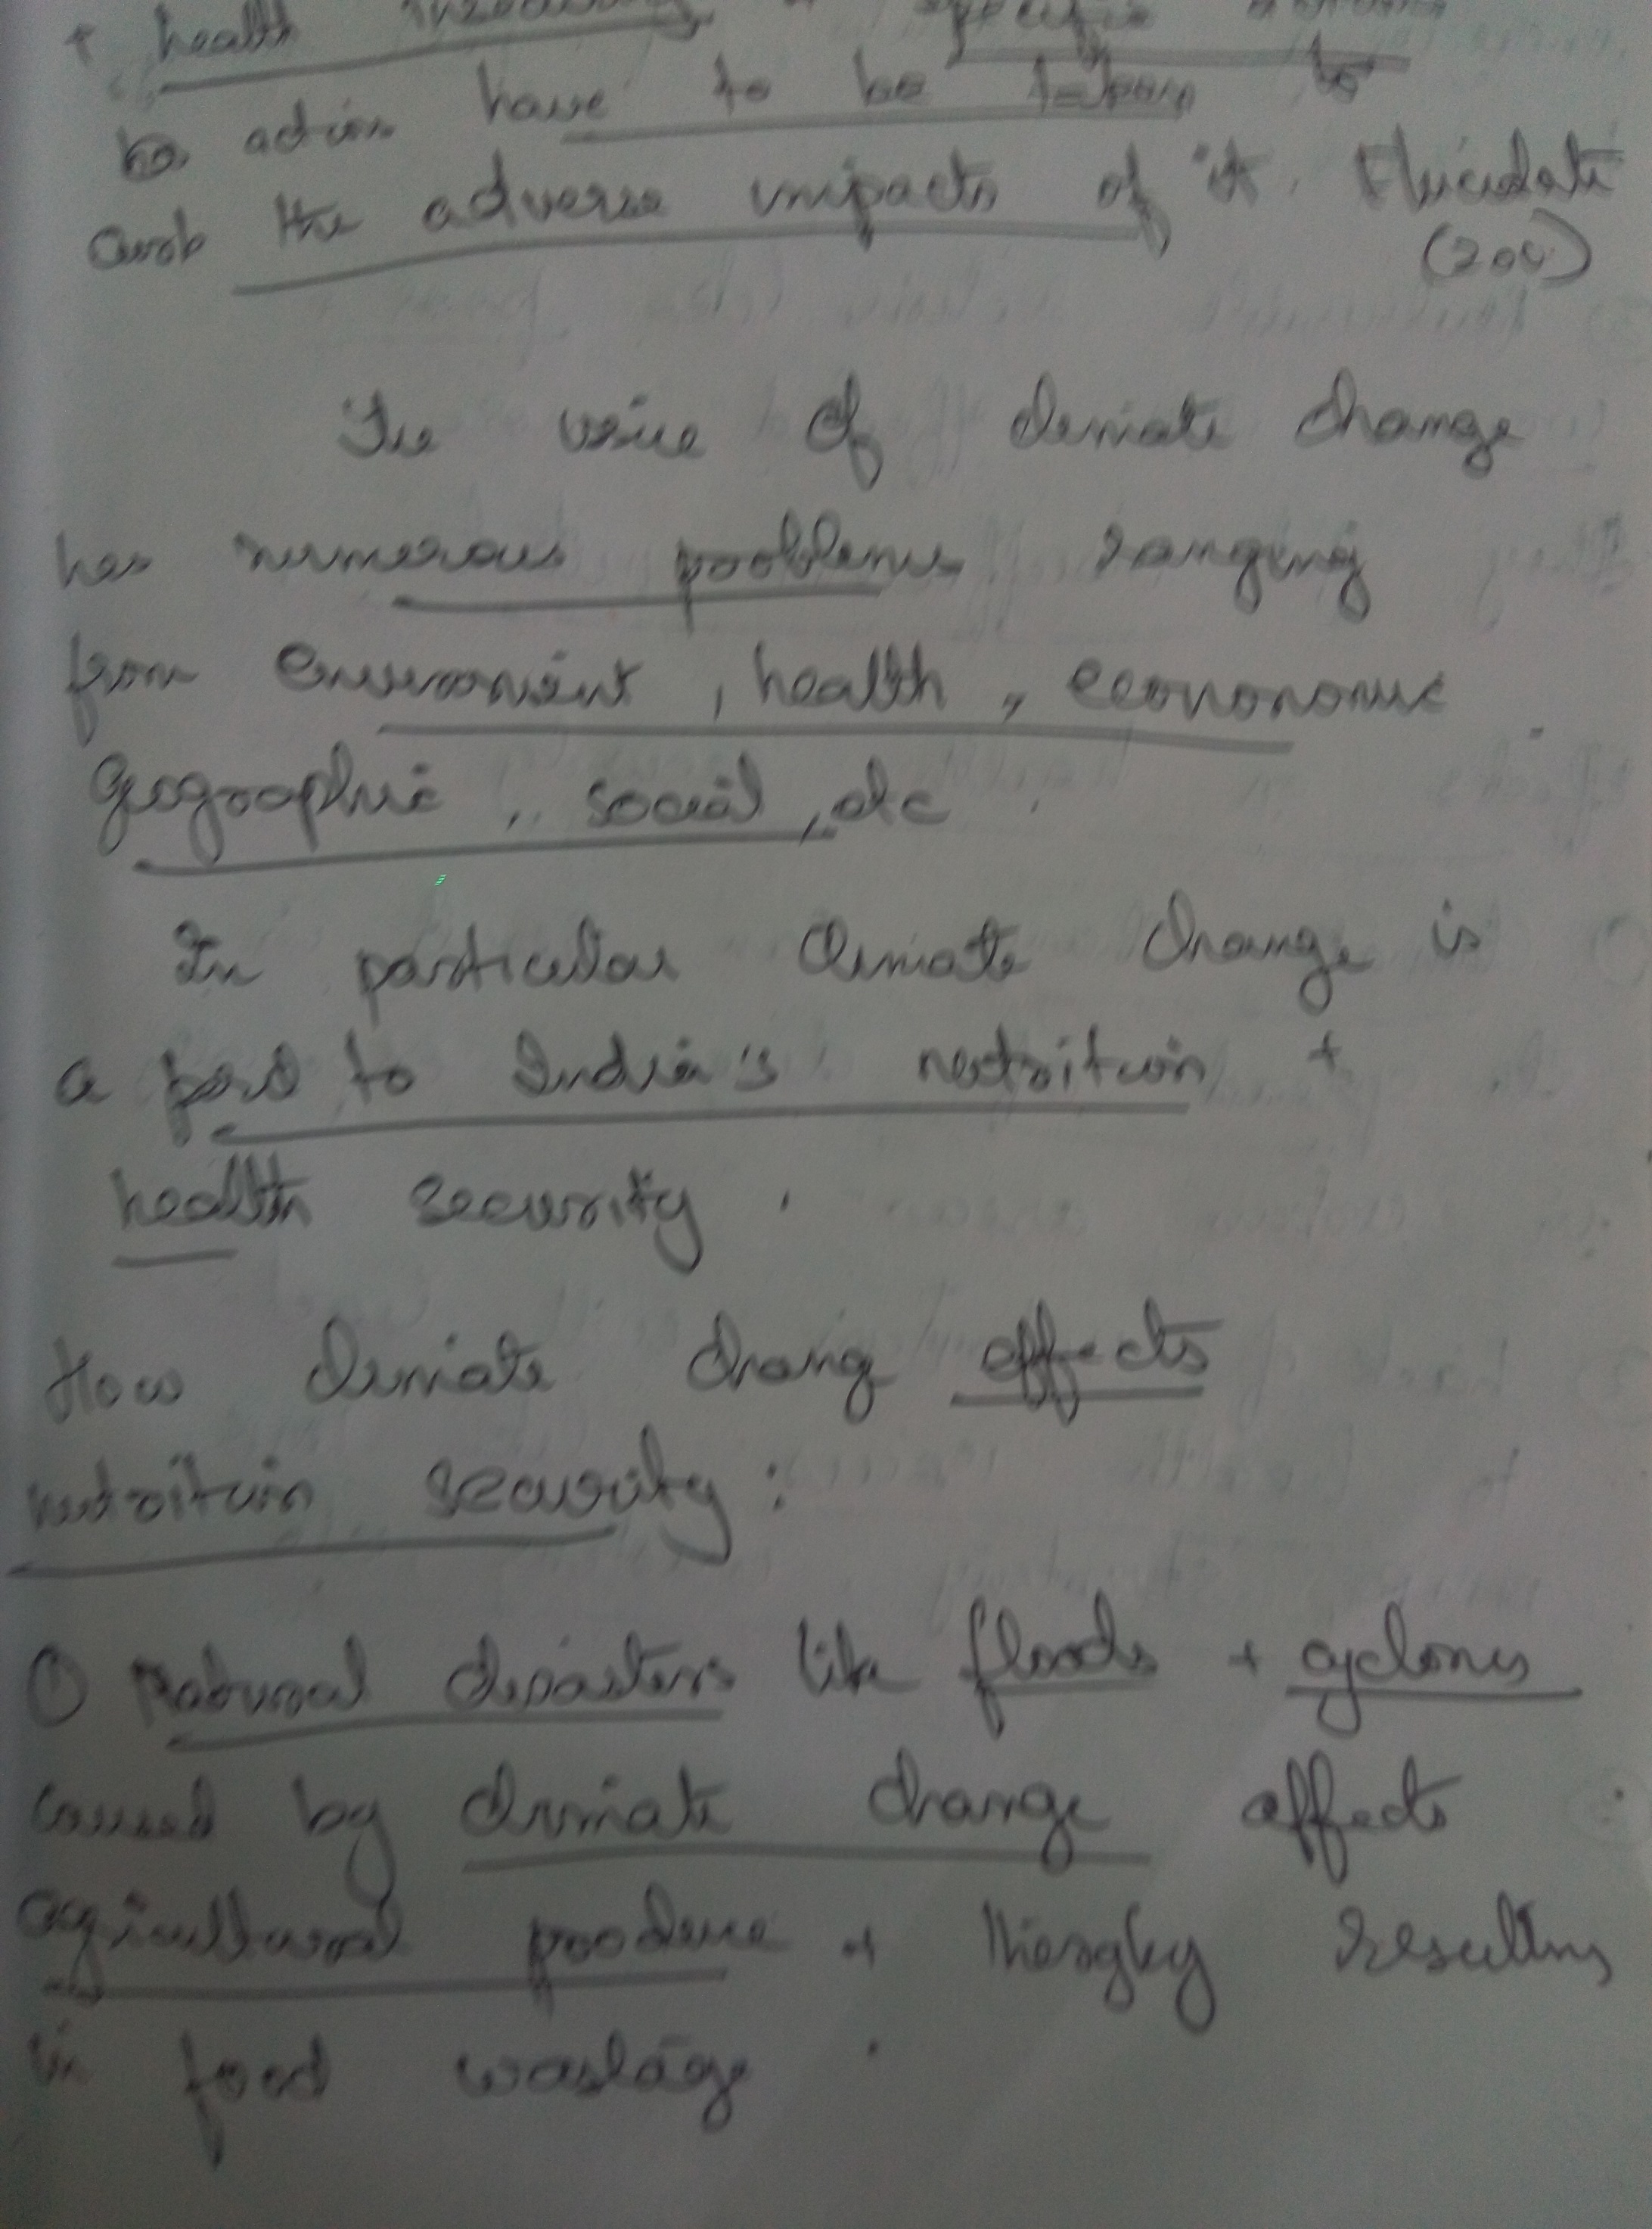 + health
action have to be taken to
curb the adverse impacts of it. Elucidate
(200)
The of climate change
has numerous problems ranging
from environment, health, econonomic
Geographic, social, etc
In particular climate change is
a to India's nutrition +
health security.
How climate chang effects
nutrition security:
① Natural disasters like floods + cyclones
caused by climate change affects
agricultural produce + resulting
in food wastage.